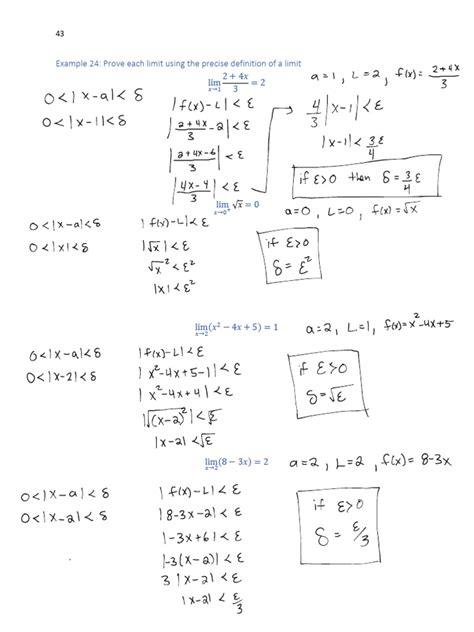 43
Example 24: Prove each limit using the precise definition of a limit
lim x→1 (2 + 4x)/3 = 2
a=1, L=2, f(x)= (2+4x)/3
0<|x-a|<δ
0<|x-1|<δ
|f(x)-L|<ε
|(2+4x)/3 -2|<ε
|(2+4x-6)/3|<ε
|(4x-4)/3|<ε
4/3 |x-1|<ε
|x-1|< 3ε/4
if ε>0 then δ= 3/4 ε
lim x→0⁺ √x = 0
a=0, L=0, f(x)=√x
0<|x-a|<δ
0<|x|<δ
|f(x)-L|<ε
|√x|<ε
√x²<ε²
|x|<ε²
if ε>0
δ=ε²
lim x→2 (x² − 4x + 5) = 1
a=2, L=1, f(x)=x²-4x+5
0<|x-a|<δ
0<|x-2|<δ
|f(x)-L|<ε
|x²-4x+5-1|<ε
|x²-4x+4|<ε
|√(x-2)²|<√ε
|x-2|<√ε
if ε>0
δ=√ε
lim x→2 (8 − 3x) = 2
a=2, L=2, f(x)=8-3x
0<|x-a|<δ
0<|x-2|<δ
|f(x)-L|<ε
|8-3x-2|<ε
|-3x+6|<ε
|-3(x-2)|<ε
3|x-2|<ε
|x-2|< ε/3
if ε>0
δ= ε/3